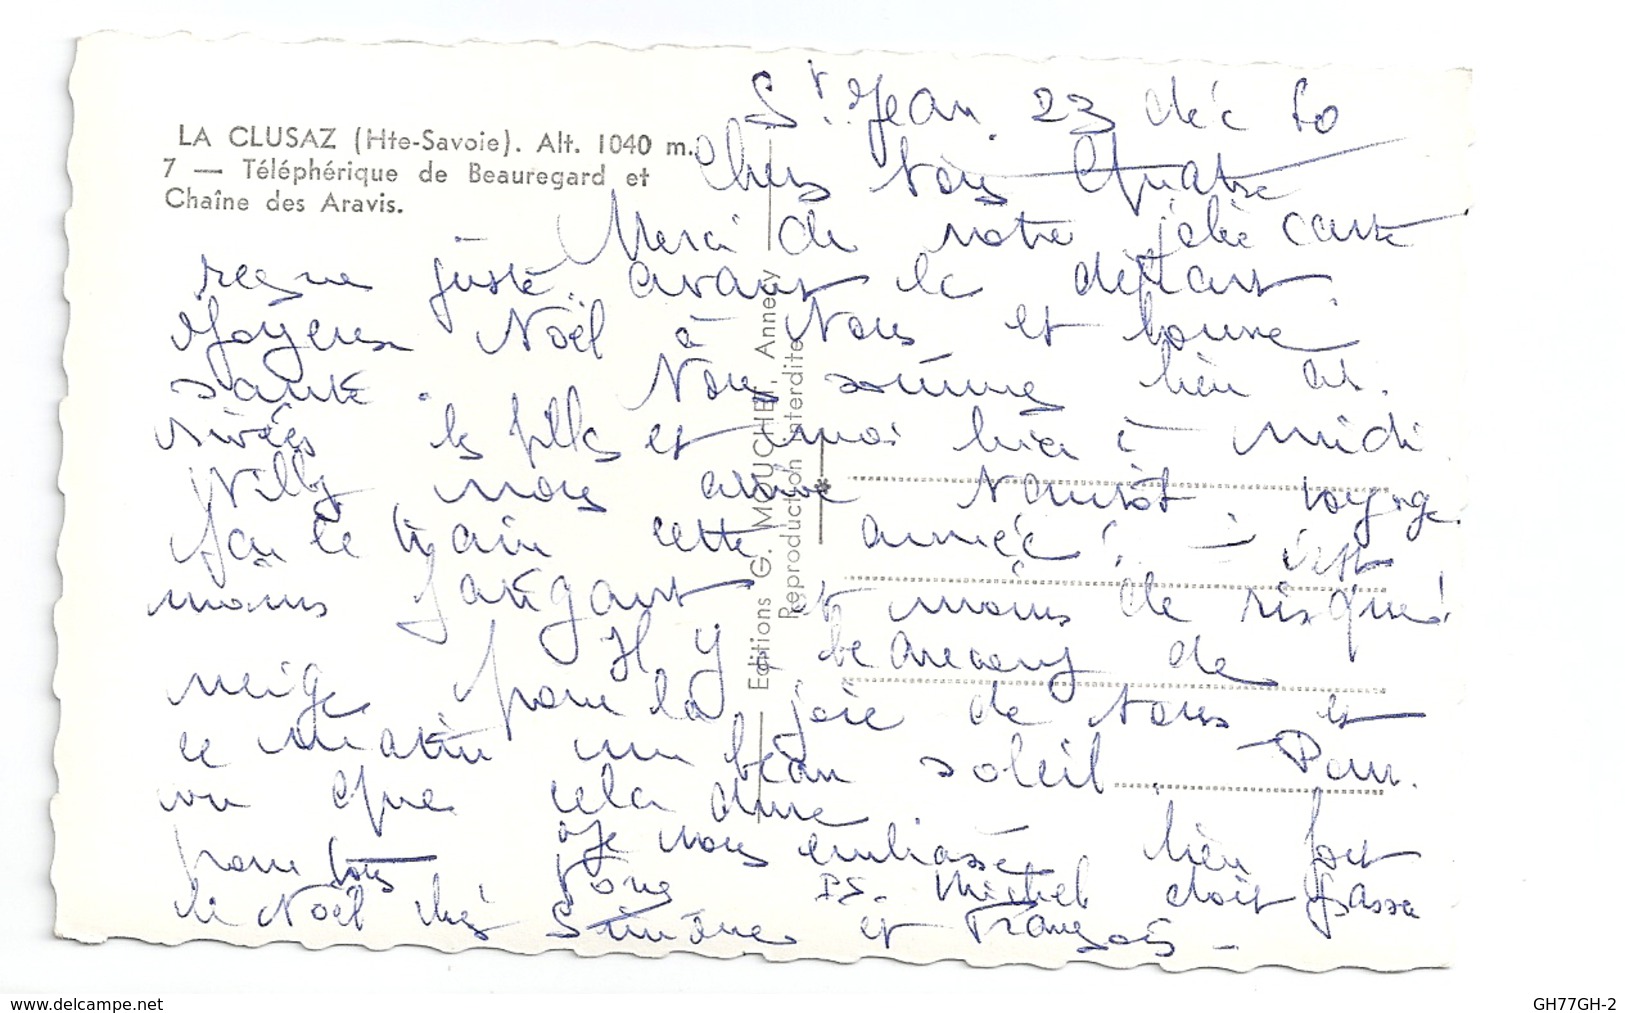 LA CLUSAZ (Hte-Savoie). Alt. 1040 m.
7 — Téléphérique de Beauregard et
Chaîne des Aravis.
Editions G. MOUCHET, Annecy
Reproduction interdite
St Jean 23 déc 60
Chers Vous Quatre
Merci de votre jolie carte
reçue juste avant le départ.
Joyeux Noël à Vous et bonne
santé. Nous sommes bien ar-
rivées les filles et moi hier à midi
Willy nous arrive tantôt, voyage
par le train cette année! — c'est
moins fatigant et moins de risque!
Il y a beaucoup de
neige pour la joie de tous et
ce matin un beau soleil. Pour-
vu que cela dure
Je vous embrasse bien fort
pour tous
PS. Michel doit passer
le Noël chez Simone et François —
www.delcampe.net
GH77GH-2